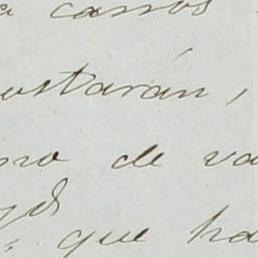 a carros
ostarán,
no de va
que ha